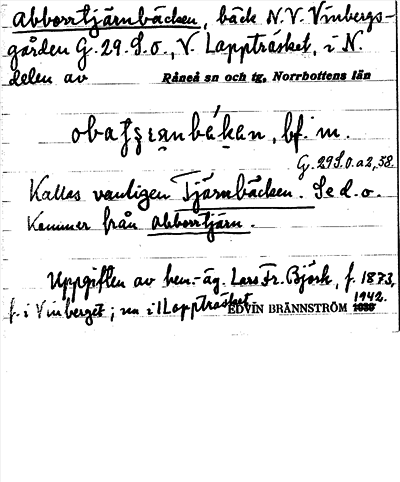 Abborrtjärnbäcken, bäck N.V. Vinbergs-
gården G.29.S.o., V. Lappträsket, i N.
delen av Råneå sn och tg, Norrbottens län
bf. m.
G.29S.o.a2,38.
Kallas vanligen Tjärnbäcken. Se d.o.
Kommer från Abborrtjärn.
Uppgiften av hem.-äg. Lars Fr. Björk, f. 1873,
f. i Vinberget; nu i Lappträsket.
EDVIN BRÄNNSTRÖM 1942.